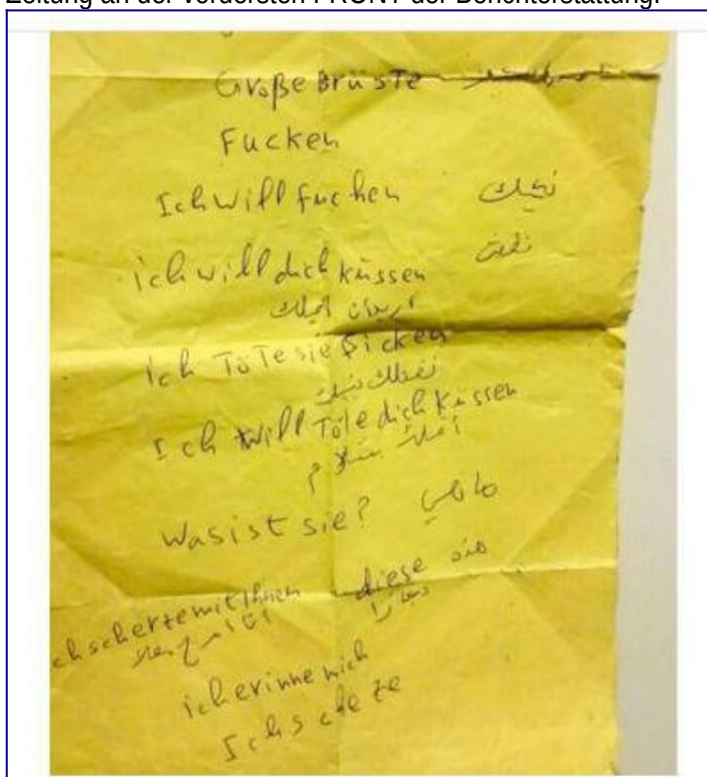 Zeitung an der vordersten FRONT der Berichterstattung.
Große Brüste
Fucken
Ich will fucken
ich will dich küssen
اريد ان اقبلك
ich Töte sie ficken
Ich will Töte dich küssen
Was ist sie? ما هي
diese هذه
ch scherze mit Ihnen
انا امزح معك
ich erinne mich
Ich sche ze